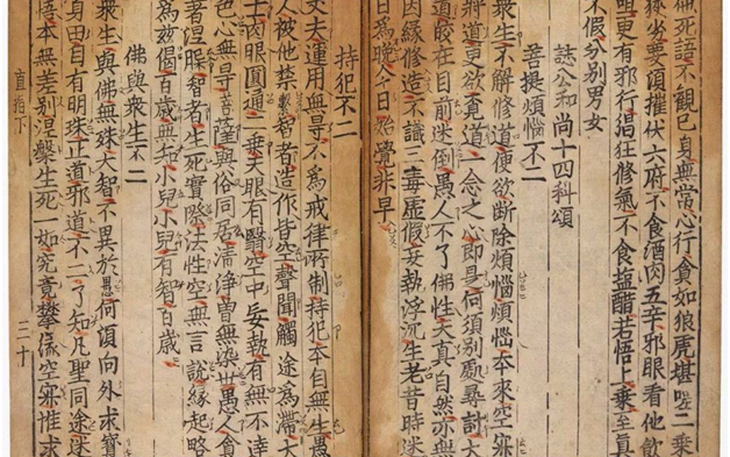 死語不觀己身無常心行貪如狼虎堪嗟二乗
劣要須摧伏六府不食酒肉五辛邪眼看他飮
更有邪行猖狂修氣不食塩醋若悟上乗至真
不假分別男女
誌公和尚十四科頌
菩提煩惱不二
衆生不解修道便欲斷除煩惱煩惱本來空寂
將道更欲覔道一念之心即是何須別處尋討大
道皎在目前迷倒愚人不了佛性天真自然亦無
因緣修造不識三毒虛假妄執浮沉生老昔時迷
日爲晚今日始覺非早
持犯不二
丈夫運用無㝵不爲戒律所制持犯本自無生愚
人被他禁繫智者造作皆空聲聞觸途爲滯大
士肉眼圓通二乗天眼有翳空中妄執有無不達
色心無㝵菩薩與俗同居清淨曾無染世愚人貪
著涅槃智者生死實際法性空無言說緣起略
爲玆偈百歲無知小兒小兒有智百歲
佛與衆生不二
衆生與佛無殊大智不異於愚何須向外求寶
身田自有明珠正道邪道不二了知凡聖同途迷
悟本無差別涅槃生死一如究竟攀緣空寂惟求
直指下 三十